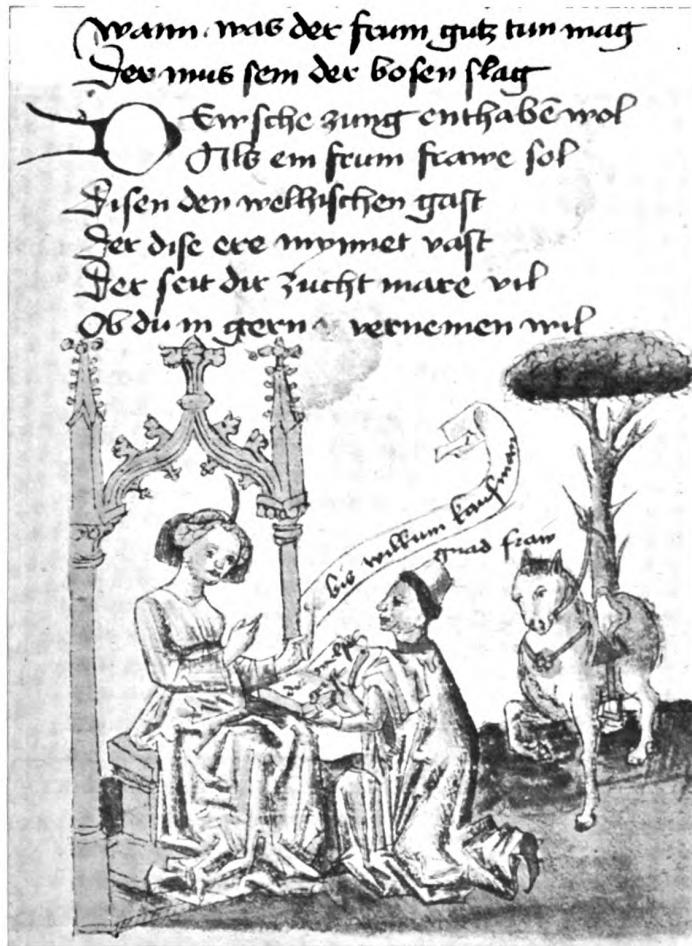 wann was der frum gutz tun mag
Der mus sein der bosen slag
Dewsche zung enthabe͂ wol
Als ein frum frawe sol
Disen den welhischen gast
Der dise ere mynnet vast
Der seit dir zucht mare vil
Ob du in gern vernemen wil
bis wilkum kaufman
gnad fraw